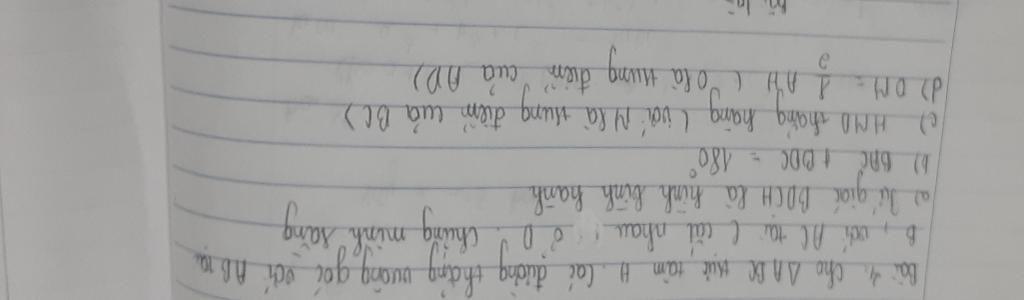 Bài 4. Cho ΔABC trực tâm H. Các đường thẳng vuông góc với AB tại
B, với AC tại C cắt nhau ở D. Chứng minh rằng
a) Tứ giác BDCH là hình bình hành
b) BAC + BDC = 180°
c) HMD thẳng hàng (với M là trung điểm của BC)
d) OM = 1/2 AH (O là trung điểm của AD)